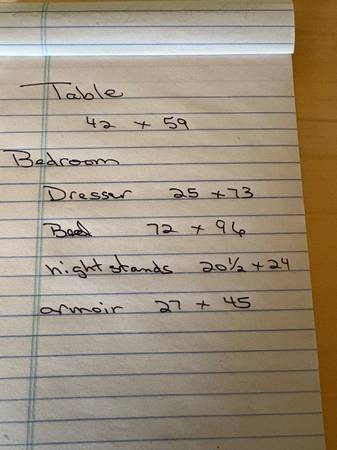 Table
42 x 59
Bedroom
Dresser 25 x 73
Bed 72 x 96
nightstands 20½ x 24
armoir 27 x 45